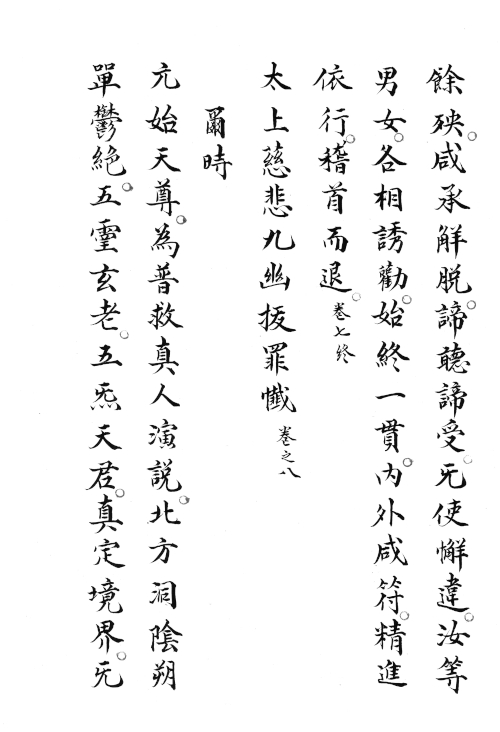 餘殃。咸承解脫。諦聽諦受。旡使懈違。汝等
男女。各相誘勸。始終一貫。內外咸符。精進
依行。稽首而退。卷七終
太上慈悲九幽拔罪懺卷之八
爾時
元始天尊。為普救真人演說。北方洞陰朔
單鬱絕。五靈玄老。五炁天君。真定境界。旡